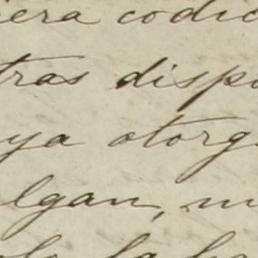 iera codic
tras dispo
ya otorg
lgan, m